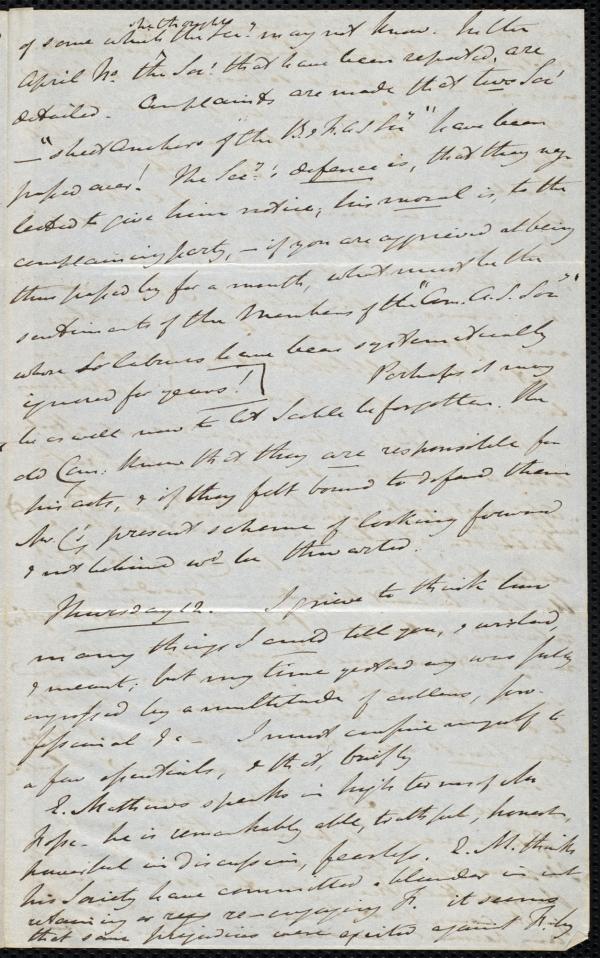 of some which the Secy. may not know. In the
April No. the Socs. that have been reported, are
detailed. Complaints are made that two Socs
— "sheet anchors of the B & F. A S Socy" have been
passed over! The Secy's defence is, that they neg-
lected to give him notice; his moral is, to the
complaining party, — if you are aggrieved at being
thus passed by for a month, what must be the
sentiments of the Members of the "Am. A. S. Socy"
whose labours have been systematically
ignored for years!] Perhaps it may
be as well now to let Scoble be forgotten. The
old Com: know that they are responsible for
his acts, & if they felt bound to defend them
Mr. C's present scheme of looking forward
& not behind wd. be thwarted.
Thursday 12. I grieve to think how
many things I could tell you, & wished,
& meant; but my time yesterday was fully
engrossed by a multitude of callers, pro-
fessional &c — I must confine myself to
a few essentials, & that, briefly
E. Mathews speaks in high terms of Mr
Pope. he is remarkably able, truthful, honest,
powerful in discussion, fearless. E. M. thinks
his Society have committed a blunder in not
retaining or re-engaging P. it seems
that some prejudices were excited against P. by